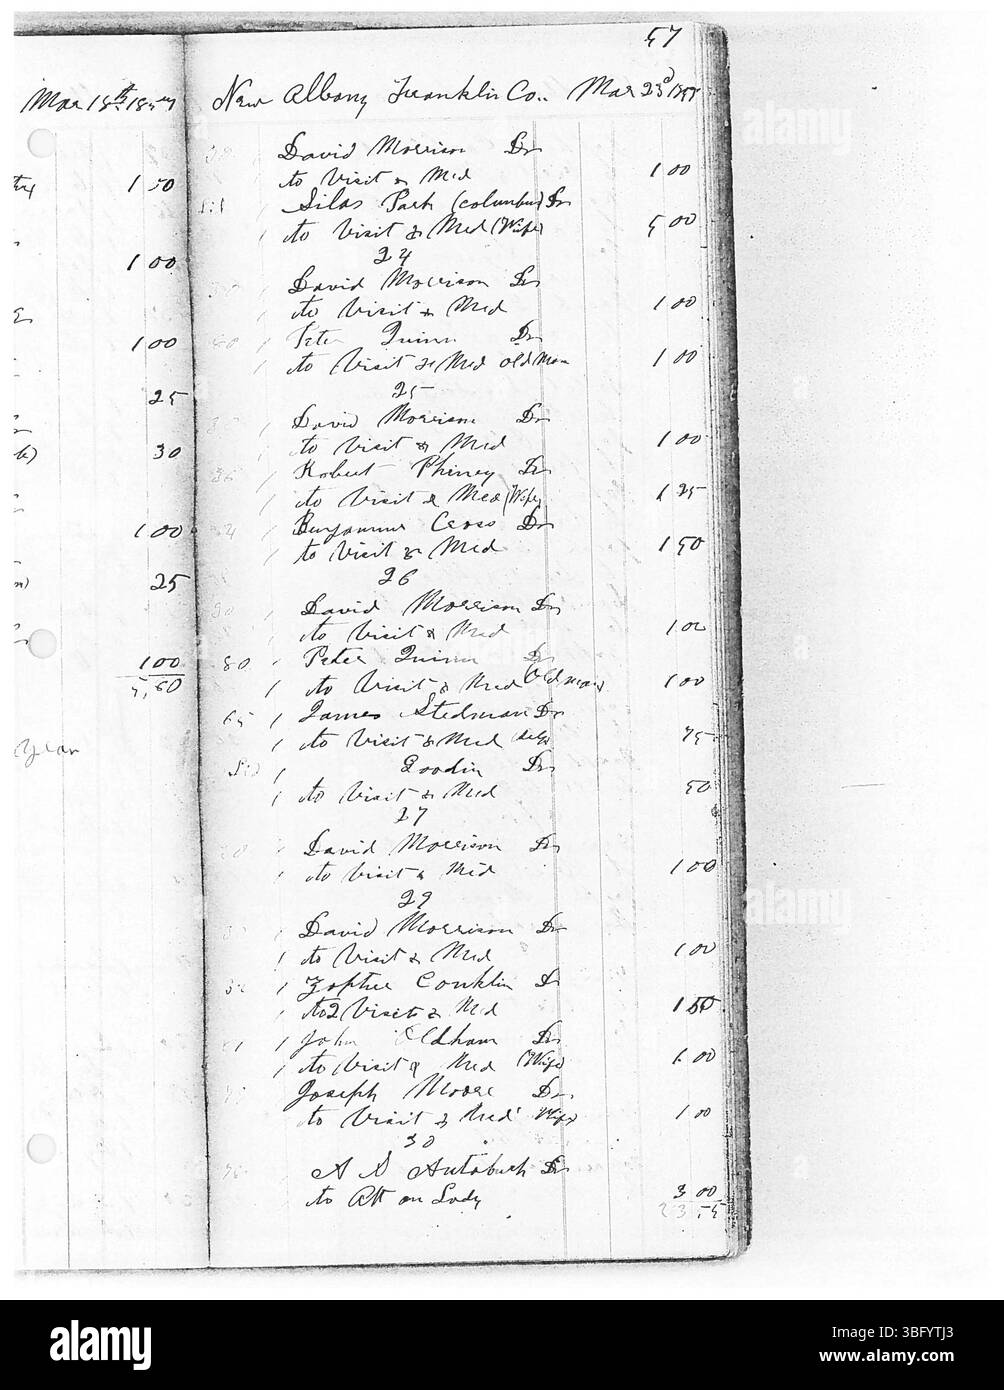 57
Mar 18th 1857
1 50
1 00
1 00
25
30
1 00
25
1 00
5,60
year
New Albany Franklin Co.. Mar 23d 1857
David Morrison Dr
to Visit & Med 1 00
Silas Park (Columbus) Dr
to Visit & Med (Wife) 5 00
24
David Morrison Dr
to Visit & Med 1 00
Peter Quinn Dr
to Visit & Med Old Man 1 00
25
David Morrison Dr
to Visit & Med 1 00
36 Robert Phiney Dr
to Visit & Med (Wife) 1 25
Benjamine Cross Dr
to Visit & Med 1 50
26
David Morrison Dr
to Visit & Med 1 00
80 Peter Quinn Dr
to Visit & Med Old man 1 00
65 James Stedman Dr
to Visit & Med 75
Goodin Dr
to Visit & Med 50
27
David Morrison Dr
to Visit & Med 1 00
29
David Morrison Dr
to Visit & Med 1 00
Conklin Dr
to 2 Visits & Med 1 50
John Oldham Dr
to Visit & Med (Wife) 1 00
Joseph Moore Dr
to Visit & Med Wife 1 00
30
A S Dr
to Att on Lady 3 00
23.55
alamy
alamy
alamy
Image ID: 3BFYTJ3
www.alamy.com